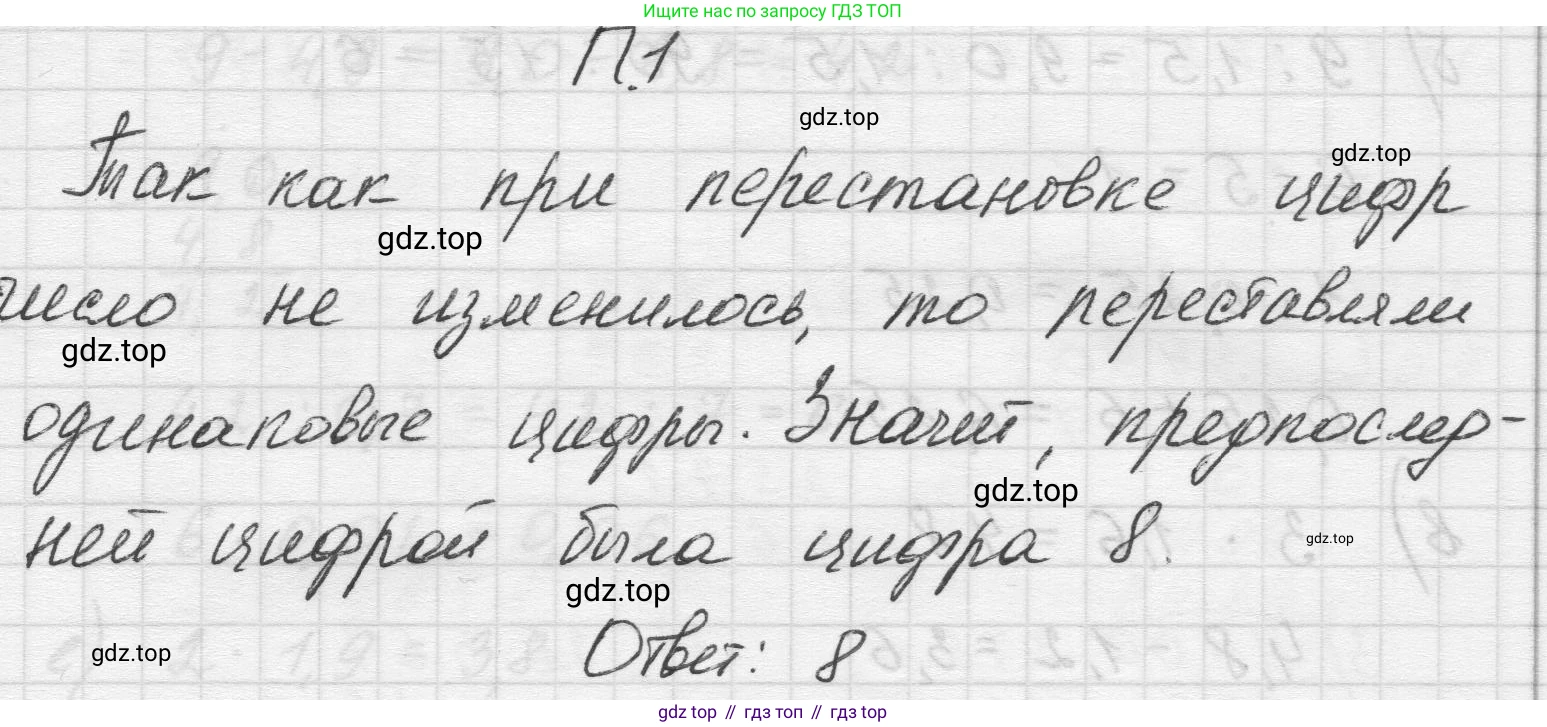 Ищите нас по запросу ГДЗ ТОП
П.1
gdz.top
gdz.top
Так как при перестановке цифр
gdz.top
число не изменилось, то переставляли
gdz.top
одинаковые цифры. Значит, предпослед-
gdz.top
ней цифрой была цифра 8.
gdz.top
gdz.top
Ответ: 8
gdz.top
gdz top // гдз топ // гдз top